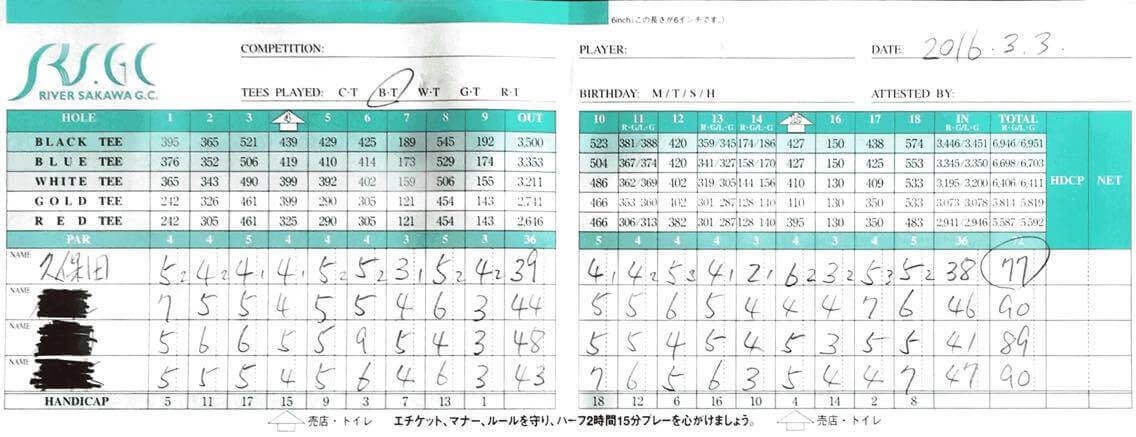 6inch(この長さが6インチです。)
RS.GC
RIVER SAKAWA G.C.
COMPETITION:
TEES PLAYED: C·T B·T W·T G·T R·T
PLAYER: DATE: 2016.3.3.
BIRTHDAY: M / T / S / H ATTESTED BY:
HOLE 1 2 3 4 5 6 7 8 9 OUT 10 11 R·G/L·G 12 13 R·G/L·G 14 R·G/L·G 15 16 17 18 IN R·G/L·G TOTAL R·G/L·G HDCP NET
BLACK TEE 395 365 521 439 429 425 189 545 192 3,500 523 381/388 420 359/345 174/186 427 150 438 574 3,446/3,451 6,946/6,951
BLUE TEE 376 352 506 419 410 414 173 529 174 3,353 504 367/374 420 341/327 158/170 427 150 425 553 3,345/3,350 6,698/6,703
WHITE TEE 365 343 490 399 392 402 159 506 155 3,211 486 362/369 402 319/305 144/156 410 130 409 533 3,195/3,200 6,406/6,411
GOLD TEE 242 326 461 399 290 305 121 454 143 2,741 466 353/360 402 301/287 128/140 410 130 350 533 3,073/3,078 5,814/5,819
RED TEE 242 305 461 325 290 305 121 454 143 2,646 466 306/313 382 301/287 128/140 395 130 350 483 2,941/2,946 5,587/5,592
PAR 4 4 5 4 4 4 3 5 3 36 5 4 4 4 3 4 3 4 5 36 72
NAME 久保田 5 2 4 2 4 1 4 1 5 2 5 2 3 1 5 2 4 2 39 4 1 4 2 5 3 4 1 2 1 6 2 3 2 5 3 5 2 38 77
NAME 7 5 5 4 5 5 4 6 3 44 5 5 6 5 4 4 4 7 6 46 90
NAME 5 6 6 5 5 9 5 4 3 48 5 5 4 5 4 5 3 5 5 41 89
NAME 5 5 5 4 5 6 4 6 3 43 7 6 5 6 3 5 4 4 7 47 90
HANDICAP 5 11 17 15 9 3 7 13 1 18 12 6 16 10 4 14 2 8
売店・トイレ エチケット、マナー、ルールを守り、ハーフ2時間15分プレーを心がけましょう。 売店・トイレ